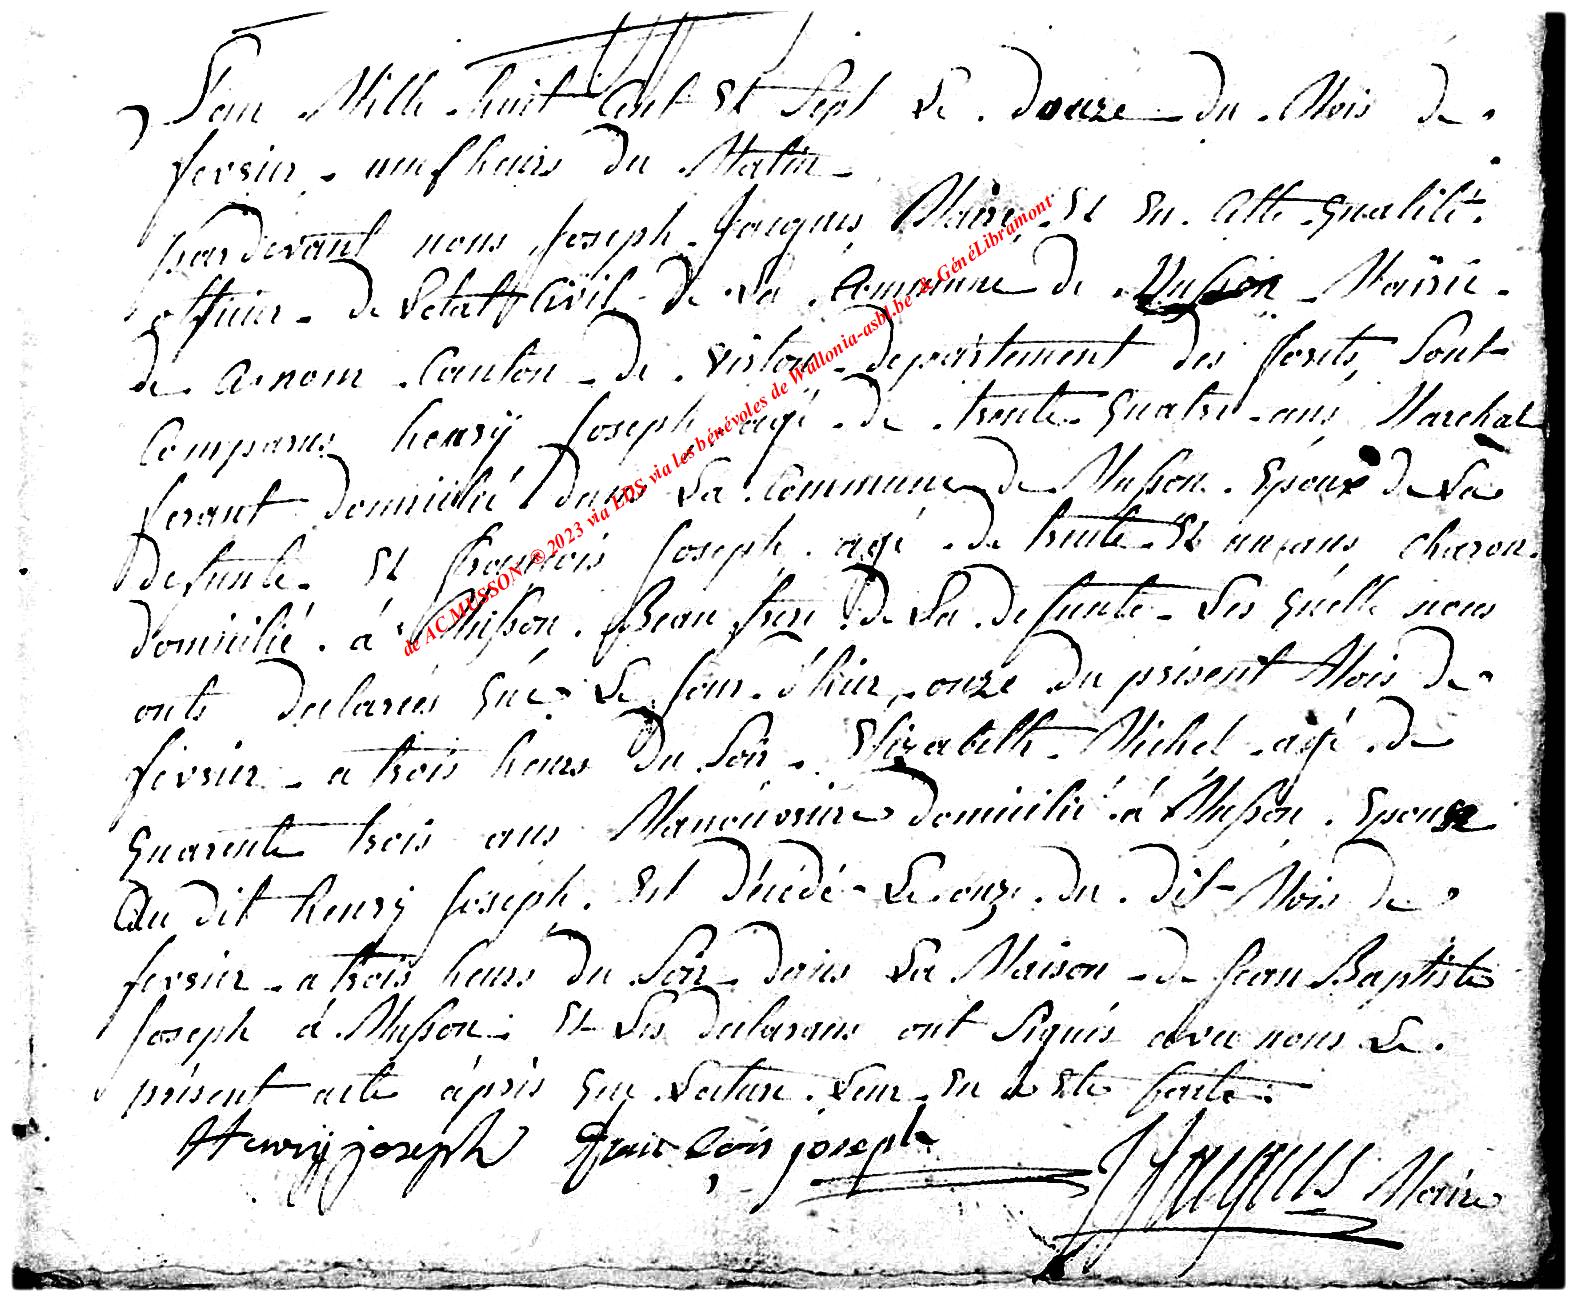 L'an Mille huit Cent Et Sept Le douze du Mois de
fevrier neuf heurs du Matin
pardevant nous Joseph Jacques Maire Et En Cette qualité
officier de Letat Civil de La Commune de Musson Mairie
de Canton de virton departement des forets, Sont
Comparus henry Joseph agé de trente quatre ans Marchal
ferant domicilié dans La Commune de Musson Epoux de La
defunte Et francois Joseph agé de trente Et un ans charon
domicilié á Musson Beau frere de La defunte Les quelle nous
onts declarées qué Le Jour d'hier onze du présent Mois de
fevrier a trois heurs du Soir Elizabethe Michel agé de
quarente trois ans Manouvrire domicilié á Musson Epouse
du dit henry Joseph Est décedé Le onze du dit Mois de
fevrier a trois heurs du Soir dans La Maison de Jean Baptiste
Joseph á Musson Et Les declarans ont Signés avec nous Le
présent acte áprés que Lecture Leur En a Eté faite
Henrÿ joseph francois joseph JJacques Maire
de ACMUSSON ©2023 via EDS via les bénévoles de Wallonia-asbl.be & GénéLibramont